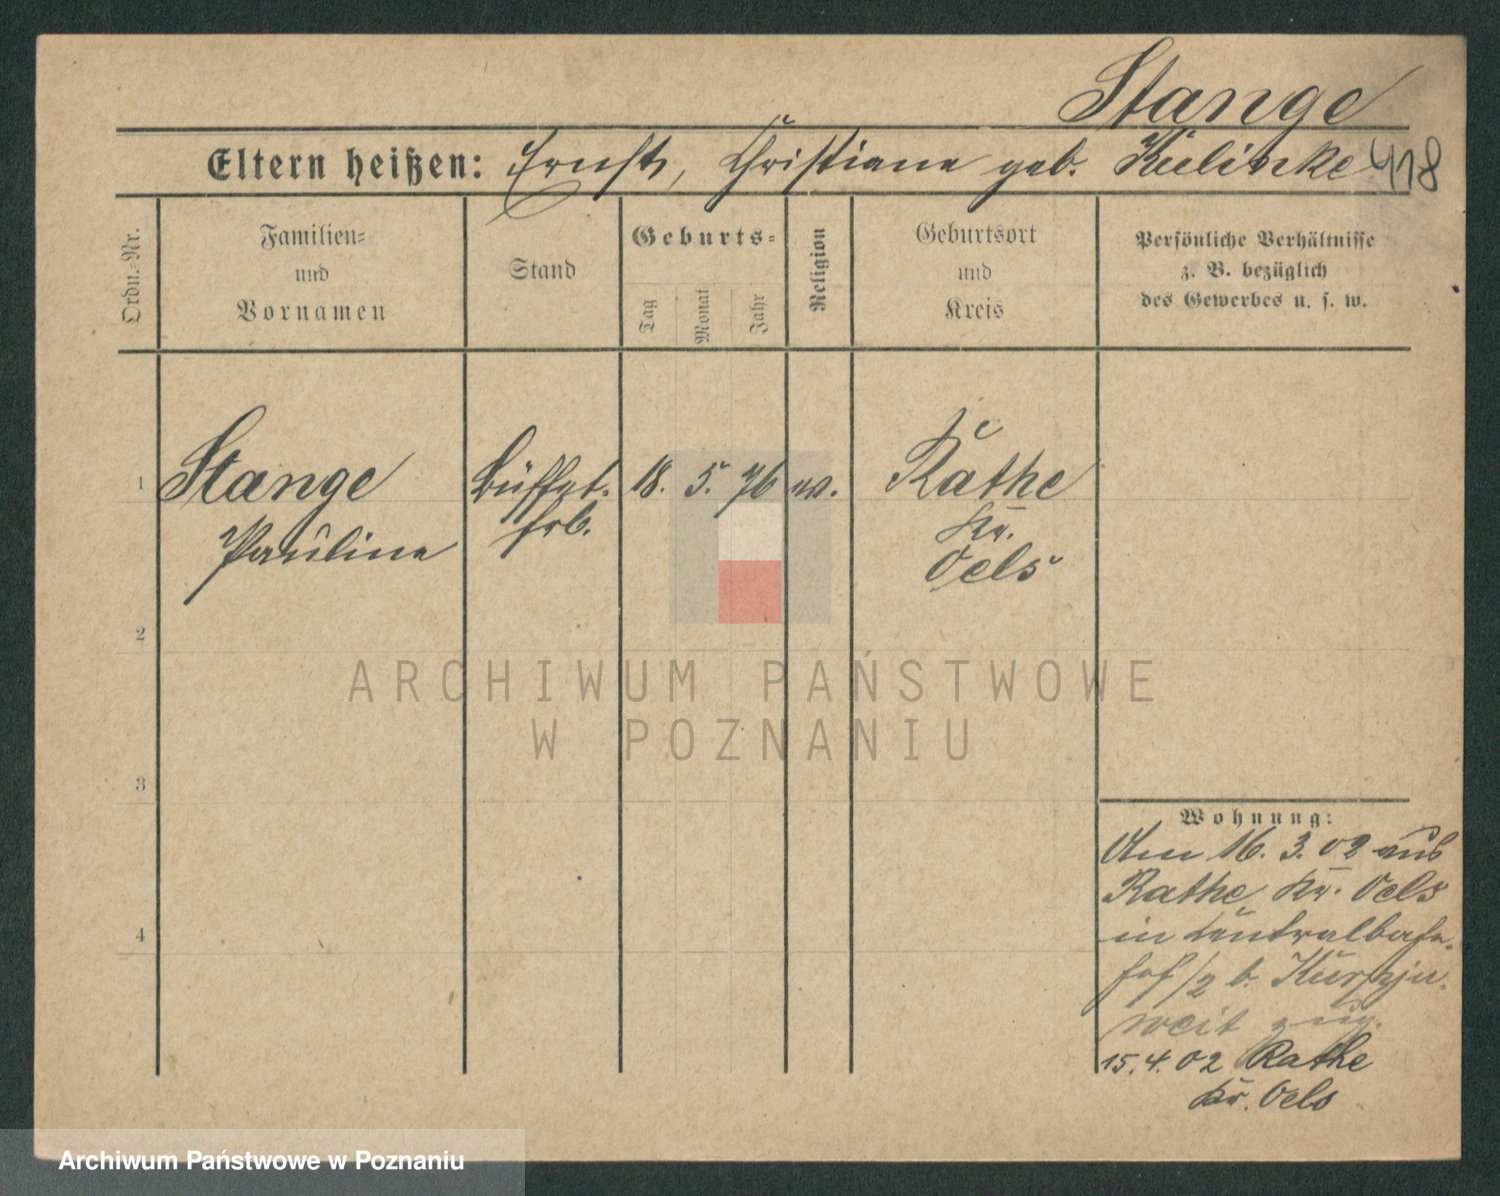 Stange
Eltern heißen: Ernst, Christiane geb. Kulinke
418
Ordn.-Nr.
Familien-
und
Vornamen
Stand
Geburts-
Tag
Monat
Jahr
Religion
Geburtsort
und
Kreis
Persönliche Verhältnisse
z. B. bezüglich
des Gewerbes u. s. w.
1
Stange
Pauline
Büffet-
frl.
18. 5. 76
ev.
Rathe
Kr.
Oels
2
ARCHIWUM PAŃSTWOWE
W POZNANIU
3
4
Wohnung:
Am 16. 3. 02 aus
Rathe Kr. Oels
in Centralbahn-
hof /2 b.
zug.
15.4.02 Rathe
Kr. Oels
Archiwum Państwowe w Poznaniu